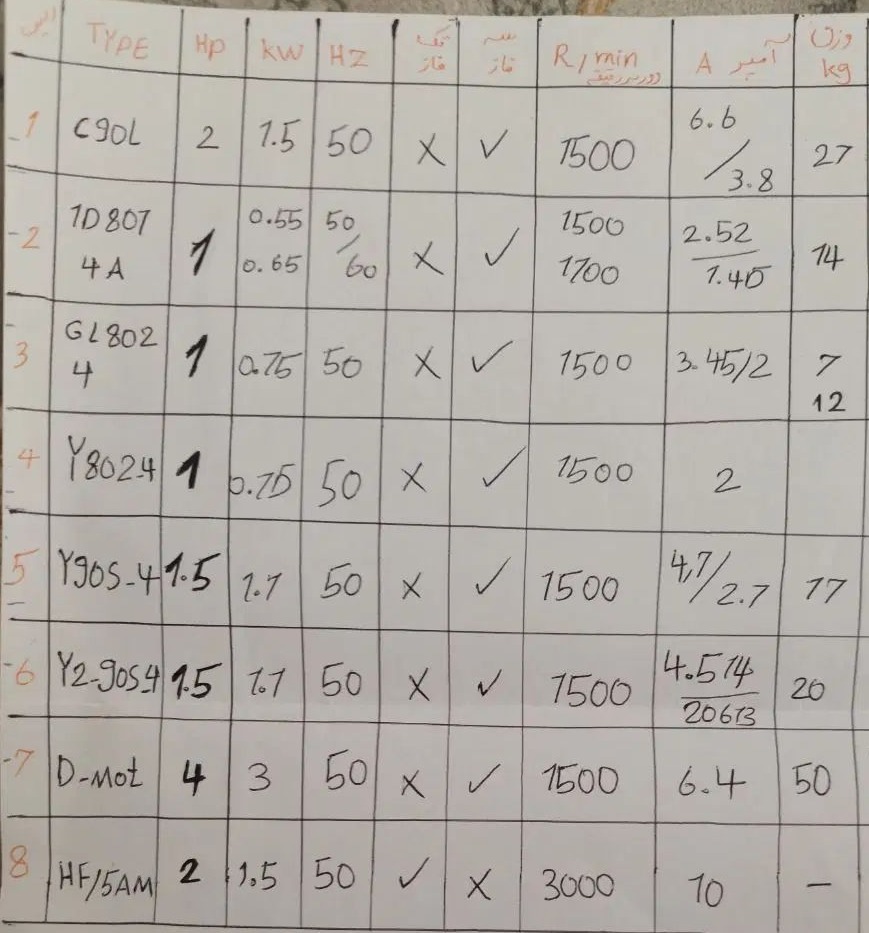 TYPE Hp kw HZ تک فاز سه فاز R/min دور بر دقیقه A آمپر وزن kg
1 C90L 2 1.5 50 X ✓ 1500 6.6/3.8 27
2 1D801 4A 1 0.55 0.65 50/60 X ✓ 1500 1700 2.52/1.45 14
3 GL802 4 1 0.75 50 X ✓ 1500 3.45/2 7 12
4 Y802-4 1 0.75 50 X ✓ 1500 2
5 Y90S-4 1.5 1.1 50 X ✓ 1500 4,7/2.7 17
6 Y2-90S4 1.5 1.1 50 X ✓ 1500 20
7 D-Mot 4 3 50 X ✓ 1500 6.4 50
8 HF/5AM 2 1.5 50 ✓ X 3000 10 -